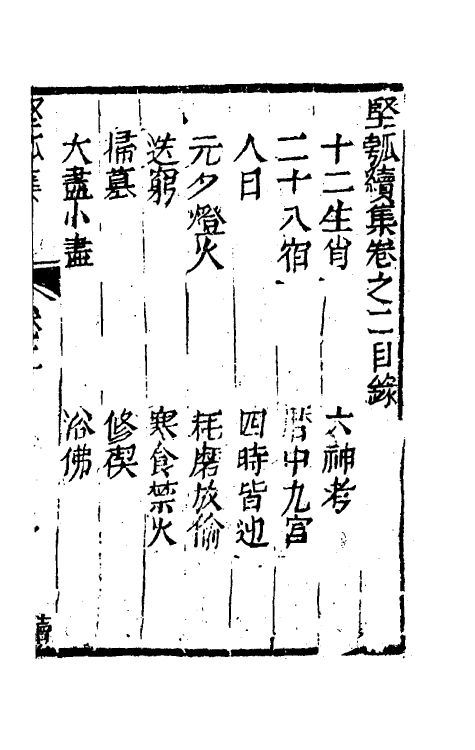 堅瓠續集卷之二目錄
十二生肖　六神考
二十八宿　曆中九宮
人日　四時皆迎
元夕燈火　耗磨放偷
送窮　寒食禁火
掃墓　修禊
大盡小盡　浴佛
堅瓠集
續